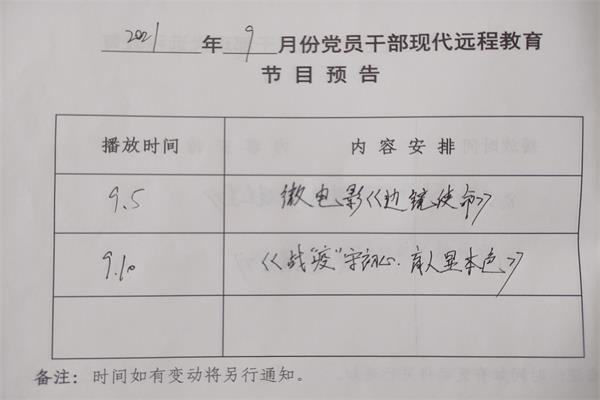 2021年9月份党员干部现代远程教育
节目预告
播放时间 内容安排
9.5 微电影《边镜使命》
9.10 《战"疫"守初心.育人显本色》
备注：时间如有变动将另行通知。